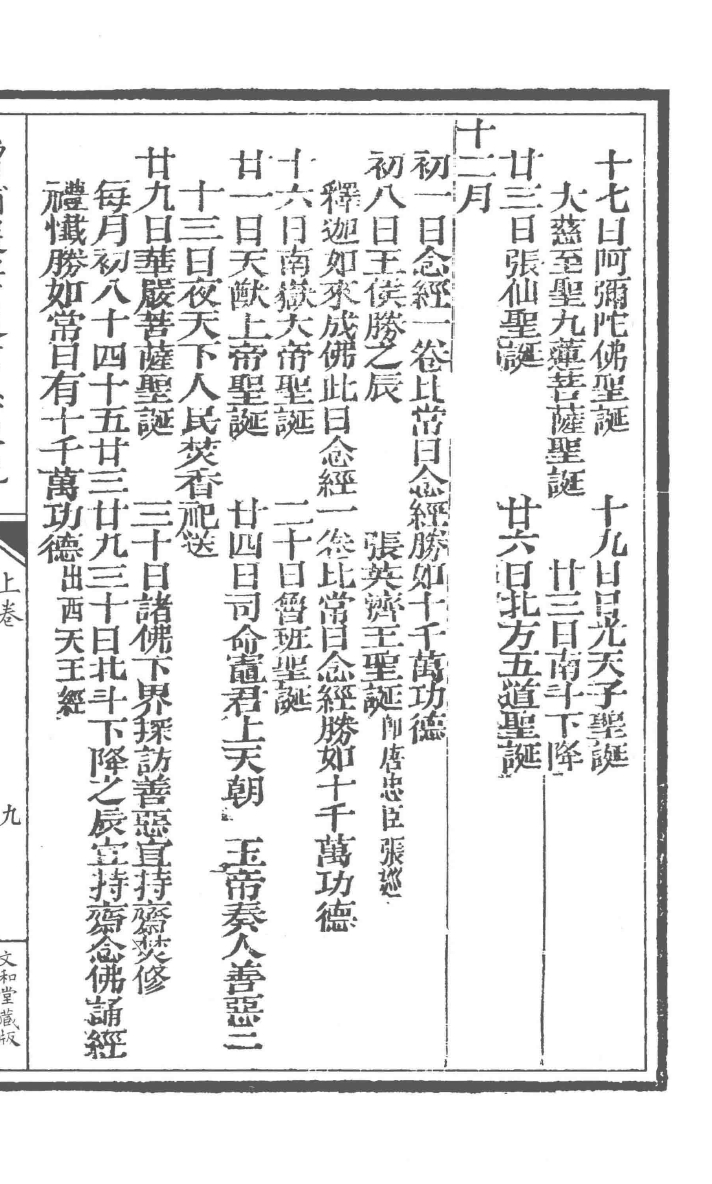 十七日阿彌陀佛聖誕　十九日日光天子聖誕
大慈至聖九蓮菩薩聖誕　廿三日南斗下降
廿三日張仙聖誕　廿六日北方五道聖誕
十二月
初一日念經一卷比常日念經勝如十千萬功德
初八日王侯勝之辰　張英濟王聖誕即唐忠臣張巡
釋迦如來成佛此日念經一卷比常日念經勝如十千萬功德
十六日南嶽大帝聖誕　二十日魯班聖誕
廿一日天猷上帝聖誕　廿四日司命竈君上天朝　玉帝奏人善惡二
十三日夜天下人民焚香祀送
廿九日華嚴菩薩聖誕　三十日諸佛下界探訪善惡宜持齋焚修
每月初八十四十五廿三廿九三十日北斗下降之辰宜持齋念佛誦經
禮懺勝如常日有十千萬功德出西天王經
上卷
九
文和堂藏版